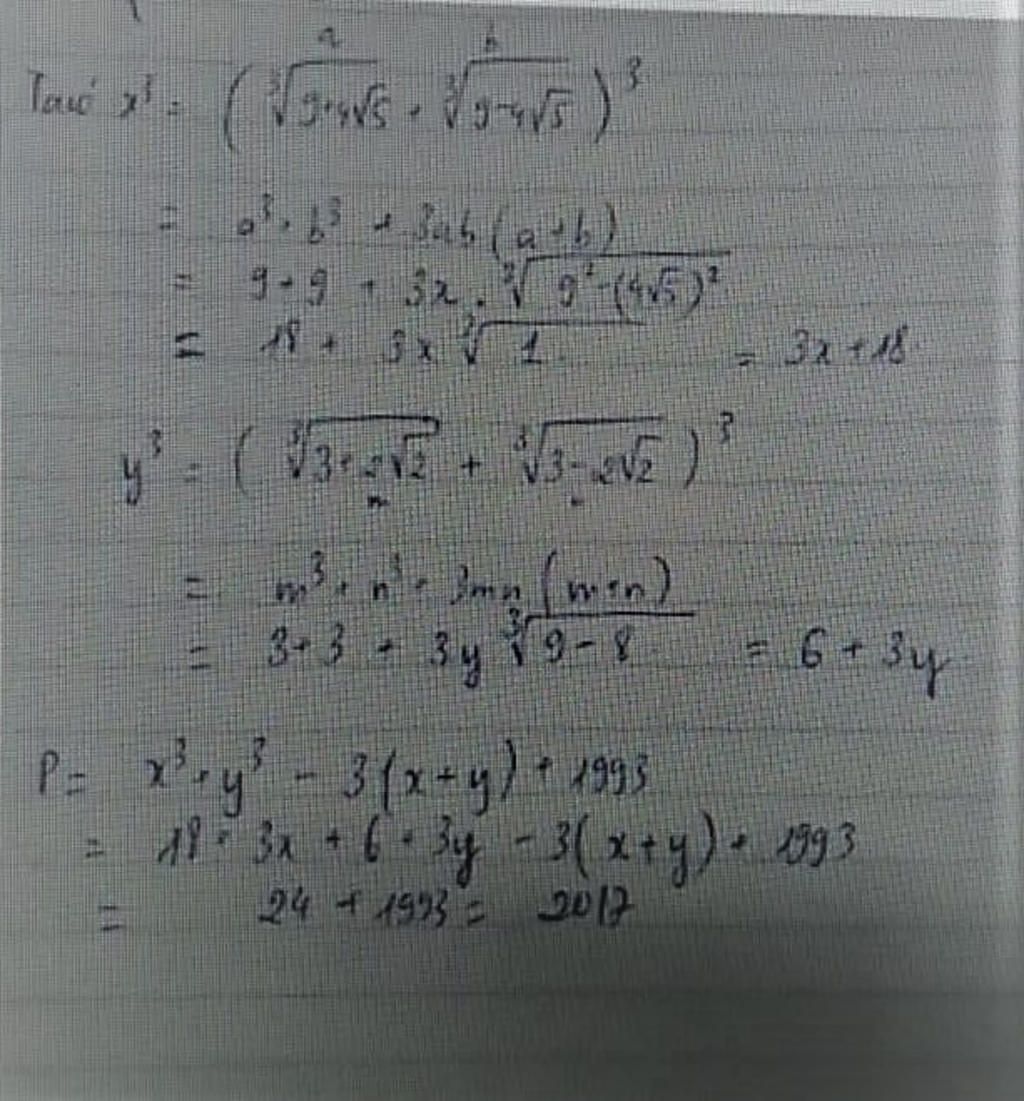 a b
Ta có x³ = (∛(9+4√5) + ∛(9-4√5))³
= a³ + b³ + 3ab(a+b)
= 9+9 + 3x . ∛(9² - (4√5)²)
= 18 + 3x ∛1 = 3x+18
y³ = (∛(3+2√2) + ∛(3-2√2))³
m n
= m³ + n³ + 3mn(m+n)
= 3+3 + 3y ∛(9-8) = 6 + 3y
P = x³ + y³ - 3(x+y) + 1993
= 18 + 3x + 6 + 3y - 3(x+y) + 1993
= 24 + 1993 = 2017